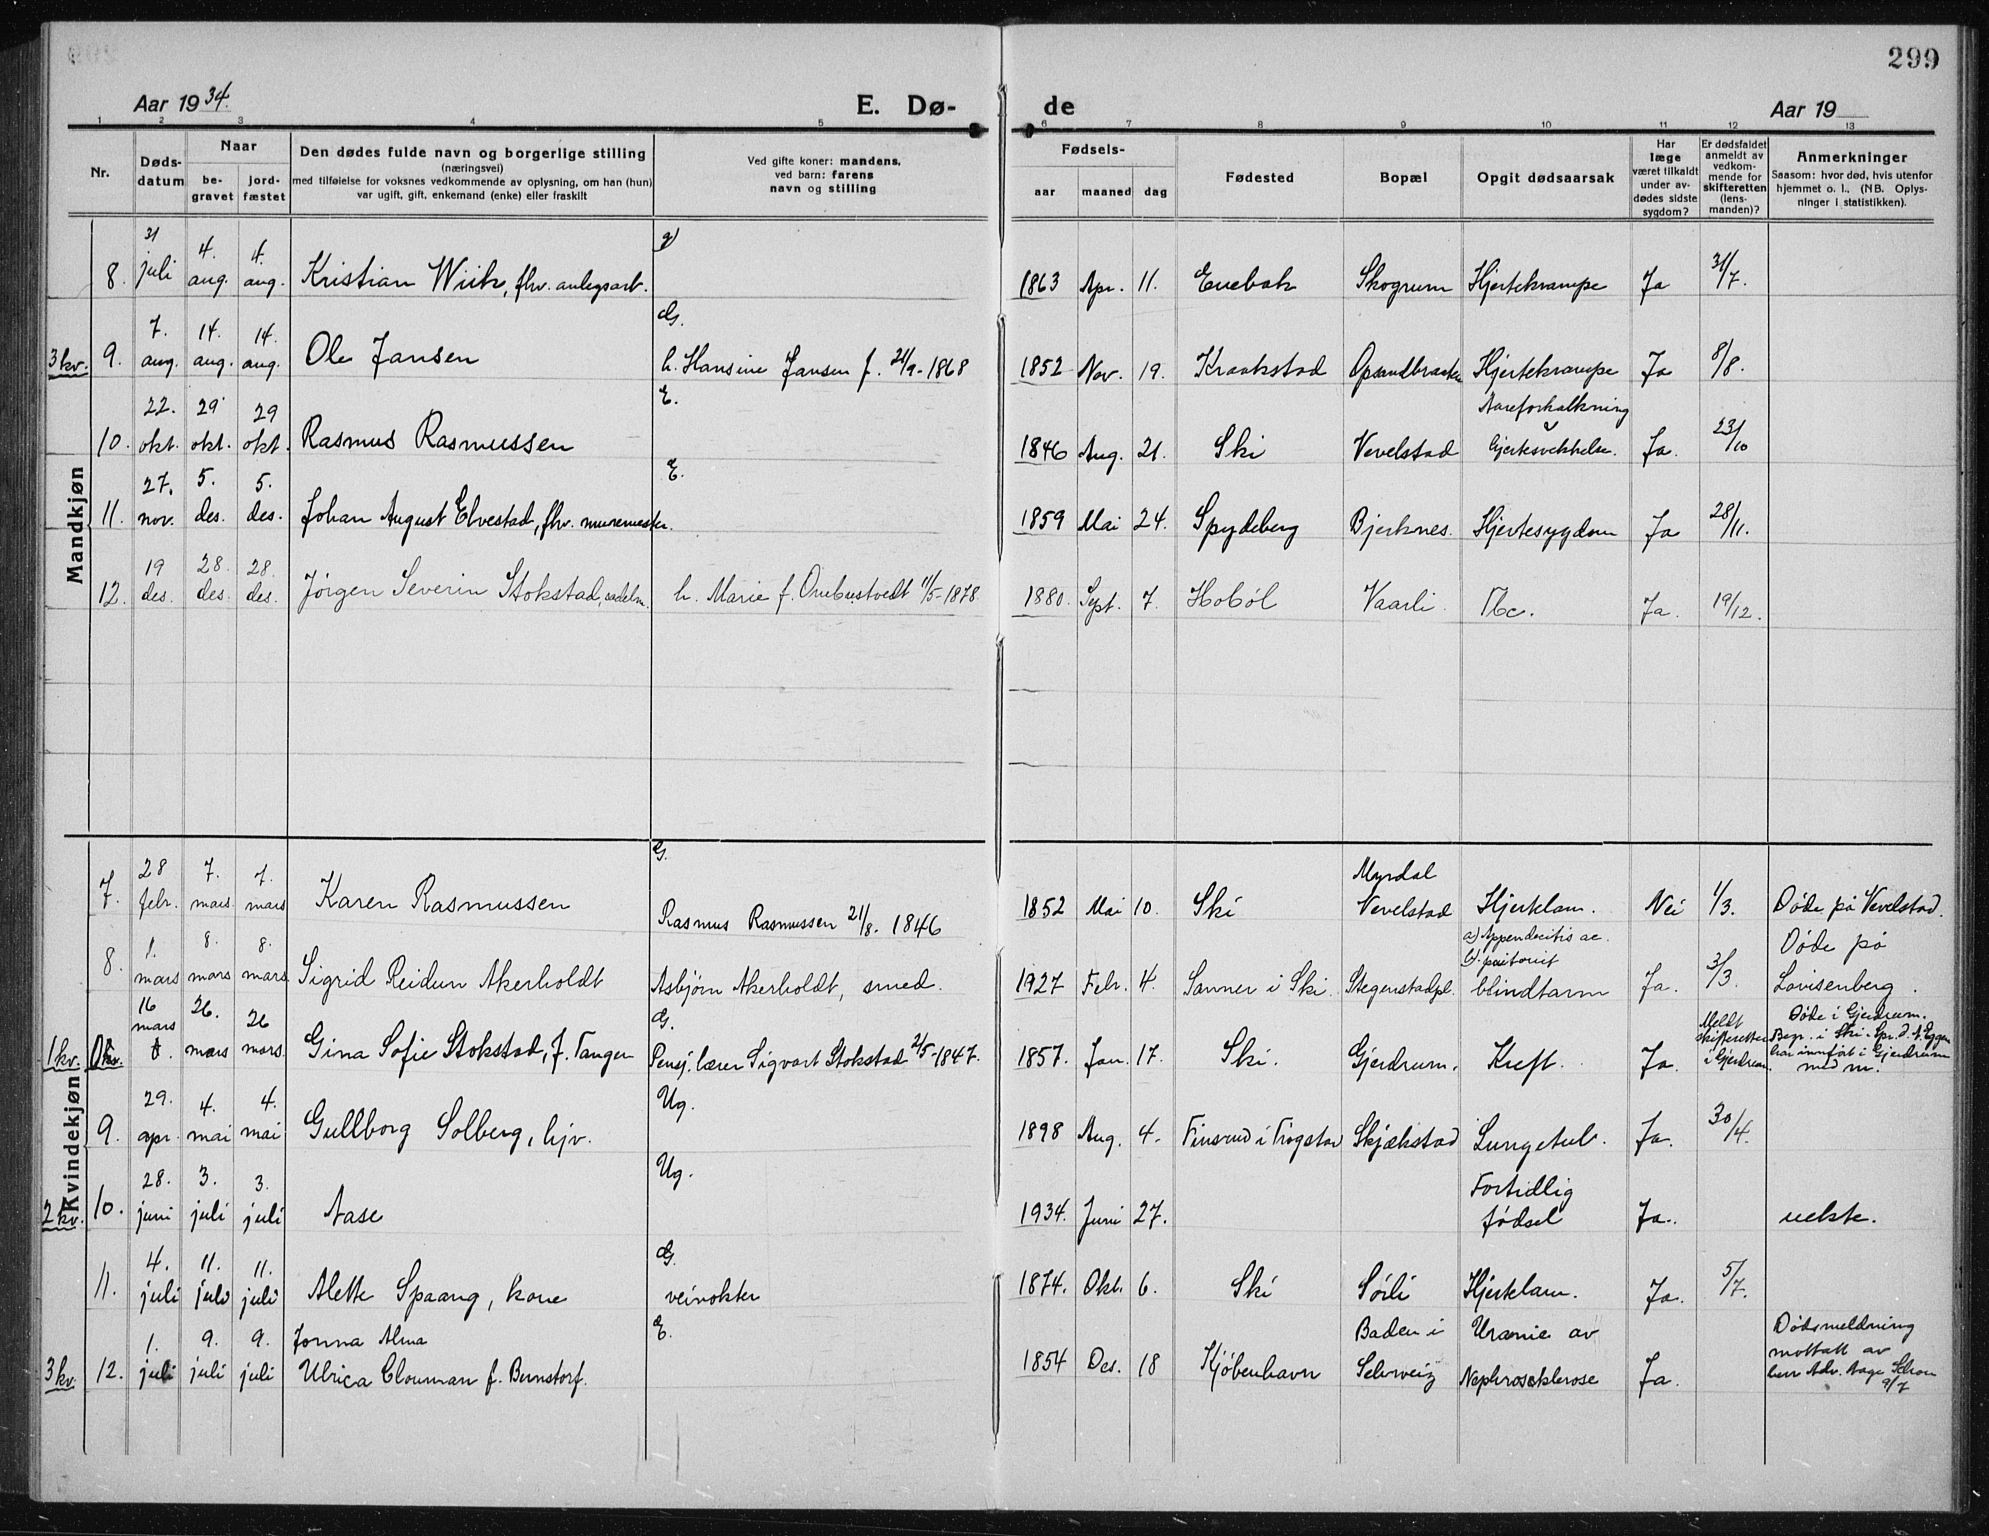 299
Aar 1934.
E. Dø-
de
Aar 19
1 2 3 4 5 6 7 8 9 10 11 12 13
Nr.
Døds-
datum
Naar
be-
gravet
jord-
fæstet
Den dødes fulde navn og borgerlige stilling
(næringsvei)
med tilføielse for voksnes vedkommende av oplysning, om han (hun)
var ugift, gift, enkemand (enke) eller fraskilt
Ved gifte koner: mandens,
ved barn: farens
navn og stilling
Fødsels-
aar maaned dag
Fødested
Bopæl
Opgit dødsaarsak
Har
læge
været tilkaldt
under av-
dødes sidste
sygdom?
Er dødsfaldet
anmeldt av
vedkom-
mende for
skifteretten
(lens-
manden)?
Anmerkninger
Saasom: hvor død, hvis utenfor
hjemmet o. l., (NB. Oplys-
ninger i statistikken).
Mandkjøn
8. 31 juli 4. aug. 4. aug. Kristian Wiik, fhv. anlegsarb. g) 1863 Apr. 11. Enebak Skogrum Hjertekrampe Ja 31/7.
3 kv. 9. 7. aug. 14. aug. 14. aug. Ole Jansen G. h. Hansine Jansen f. 21/9-1868 1852 Nov. 19. Kraakstad Hjertekrampe Ja 8/8.
10. 22. okt. 29 okt. 29 okt. Rasmus Rasmussen E. 1846 Aug. 21. Ski Vevelstad Aareforkalkning Hjertesvekkelse. Ja. 23/10
11. 27. nov. 5. des. 5. des. Johan August Elvestad, fhv. muremester. E. 1859 Mai 24. Spydeberg Bjerknes. Hjertesygdom Ja 28/11.
12. 19 des. 28. des. 28. des. Jørgen Severin Stokstad, sadelm. h. Marie f. Ombustvedt 11/5-1878. 1880. Sept. 7. Hobøl Vaarli. Tbc. Ja. 19/12.
Kvindekjøn
7. 28 febr. 7. mars 7. mars Karen Rasmussen G. Rasmus Rasmussen 21/8. 1846 1852 Mai 10. Ski Myrdal Vevelstad Hjerteklam. Nei 1/3. Døde på Vevelstad.
8. 1. mars 8. mars 8. mars. Sigrid Reidun Akerholdt Asbjørn Akerholdt, smed. 1927 Febr. 4. Sanner i Ski. Stegenstadpl. a) Appendecitis ac. b) blindtarm Ja. 3/3. Døde på Lovisenberg.
1 kv. 0 kv. 16 mars 26. mars 26 mars. Gina Sofie Stokstad, f. Tangen G. Pensj. lærer Sigvart Stokstad 21/5-1847. 1857. Jan. 17. Ski. Gjerdrum. Kreft. Ja. Meldt skifteretten i Gjerdrum. Døde i Gjerdrum. Begr. i Ski. Spr. d. A. Eggen har innført i Gjerdrum med nr.
9. 29. apr. 4. mai 4. mai Gullborg Solberg, hjv. Ug. 1898 Aug. 4. Finsrud i Trøgstad Skjækstad Lungetub. Ja. 30/4.
2 kv. 10. 28. juni 3. juli 3. juli Aase Ug. 1934. Juni 27. Fortidlig fødsel Ja. uekte.
11. 4. juli 11. juli 11. juli Alette Spaang, kone G. veivokter 1874. Okt. 6. Ski Sørli Hjerteklam. Ja. 5/7.
3 kv. 12. 1. juli 9. juli 9. juli Jonna Alma Ulrica Clouman f. Bernstorf. E. 1854 Des. 18 Kjøbenhavn Baden i Schweiz Uræmie av Nephrosoklerose Ja. Dødsmeldning mottatt av herr Adv. Aage Schou 9/7